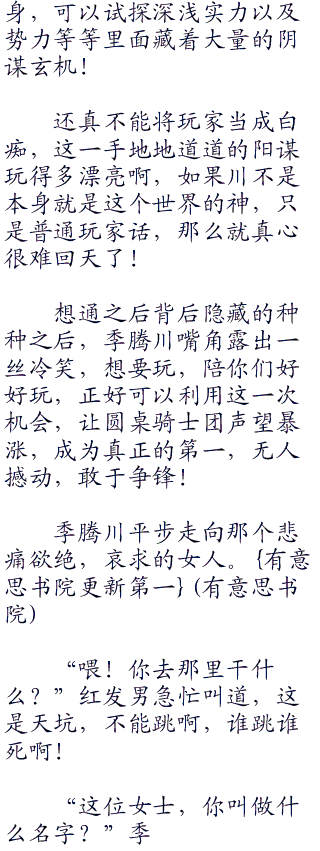 身，可以试探深浅实力以及
势力等等里面藏着大量的阴
谋玄机！
还真不能将玩家当成白
痴，这一手地地道道的阳谋
玩得多漂亮啊，如果川不是
本身就是这个世界的神，只
是普通玩家话，那么就真心
很难回天了！
想通之后背后隐藏的种
种之后，季腾川嘴角露出一
丝冷笑，想要玩，陪你们好
好玩，正好可以利用这一次
机会，让圆桌骑士团声望暴
涨，成为真正的第一，无人
撼动，敢于争锋！
季腾川平步走向那个悲
痛欲绝，哀求的女人。{有意
思书院更新第一} (有意思书
院)
“喂！你去那里干什
么？”红发男急忙叫道，这
是天坑，不能跳啊，谁跳谁
死啊！
“这位女士，你叫做什
么名字？”季